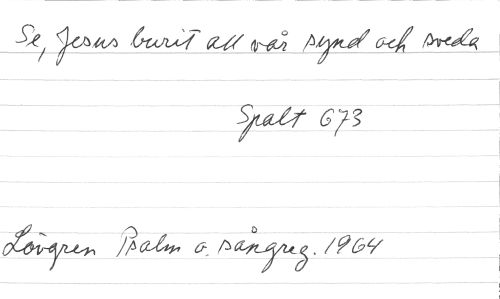 Se, Jesus burit all vår synd och sveda
Spalt 673
Lövgren Psalm o. sångreg. 1964